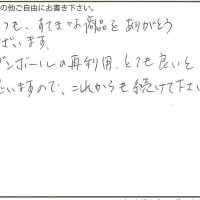 の他ご自由にお書き下さい。
ても、すてきな商品をありがとう
ざいます。
ンボールの再利用、とても良いと
思いますので、これからも続けて下さい